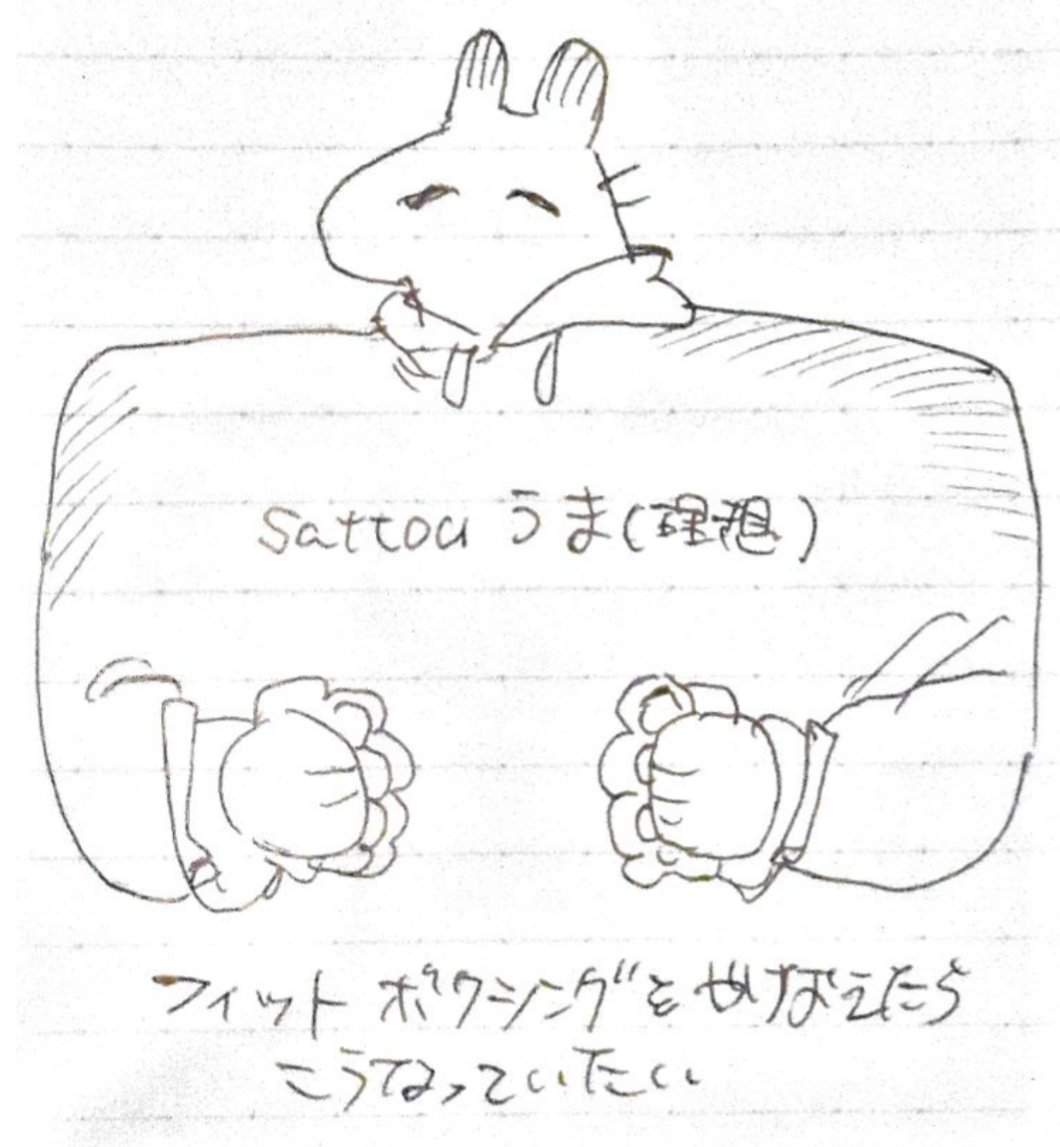 sattou うま(理想)
フィットボクシングをやりおえたら
こうなっていたい